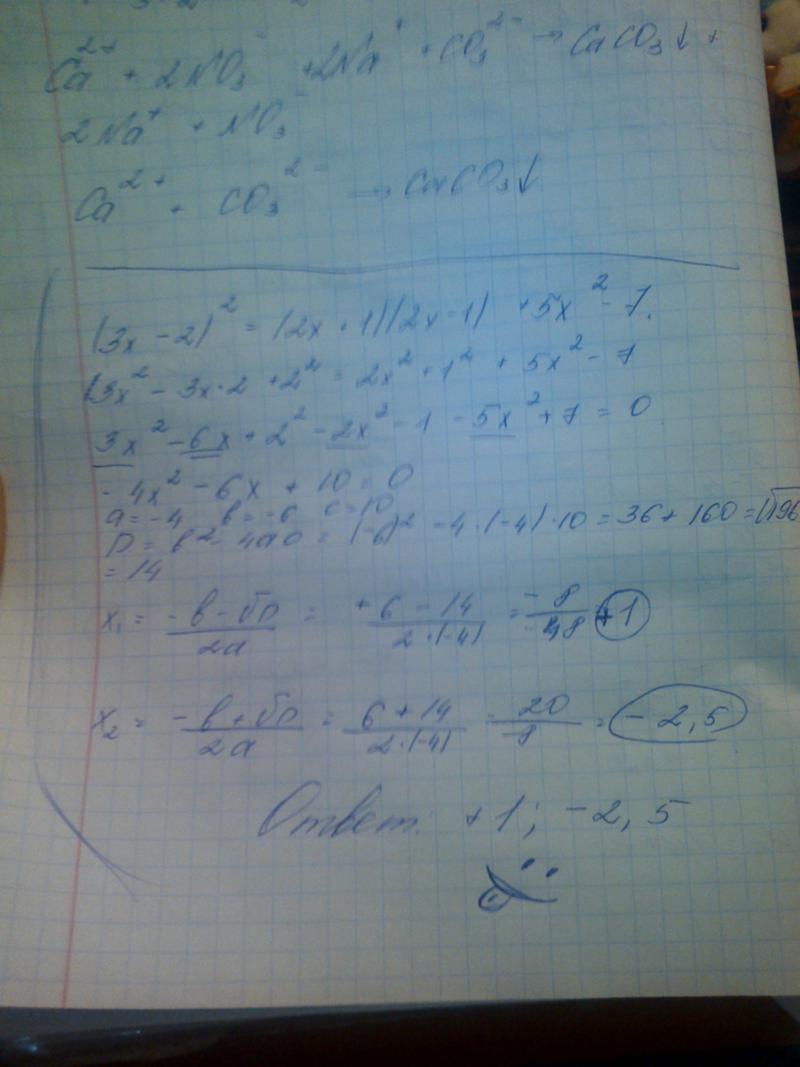 Ca²⁺ + 2NO₃⁻ + 2Na⁺ + CO₃²⁻ → CaCO₃↓ +
2Na⁺ + NO₃⁻
Ca²⁺ + CO₃²⁻ → CaCO₃↓
(3x - 2)² = (2x + 1)(2x - 1) + 5x² - 7.
(3x² - 3x·2 + 2² = 2x² + 1² + 5x² - 7
3x² - 6x + 2² - 2x² - 1 - 5x² + 7 = 0
- 4x² - 6x + 10 = 0
a = -4 b = -6 c = 10
D = b² - 4ac = (-6)² - 4·(-4)·10 = 36 + 160 = √196
= 14
x₁ = (-b - √D)/2a = (+6 - 14)/(2·(-4)) = -8/-8 +1
x₂ = (-b + √D)/2a = (6 + 14)/(2·(-4)) = 20/-8 = -2,5
Ответ: +1; -2,5